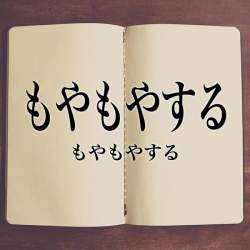 もやもやする
もやもやする